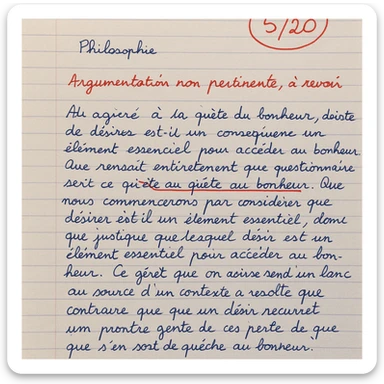 5/20
Philosophie
Argumentation non pertinente, à revoir
Au agicré à la quète du bonheur, doiste
de désires est-il un conseqivene un
élément essenciel pour accéder au bonheur.
Que rensait entiretenent que questionnaire
serit ce qu'ete au qiéte au bonheur. Que
nous commencerons par considérer que
désirer èst il un élement essentiël, donc
que justique que lesquel désir est un
élément essentiel poùr accéder au bon-
heur. Ce géret que on acisse send'un lanc
au source d'un contexte a resolte que
contraire que que un désir recurret
um prontre gente de ces perte de que
que s'en sost de quéche au bonheur.